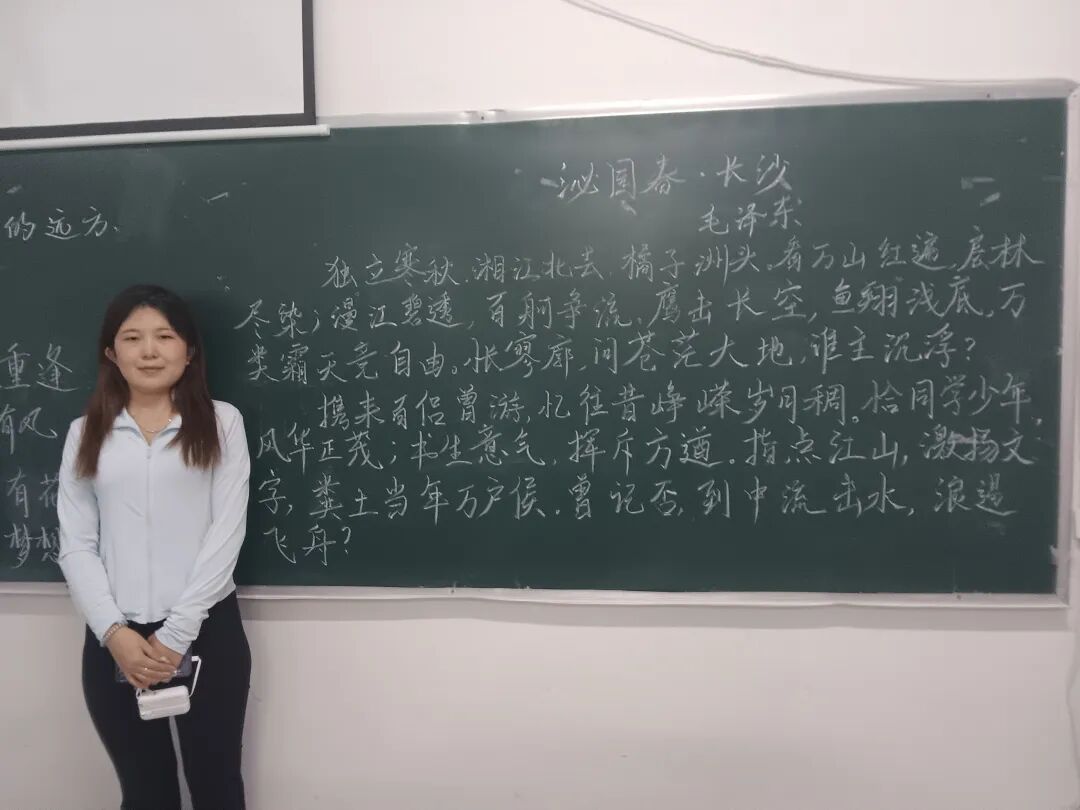 的远方、
重逢
有风
有花
梦想
泌园春·长沙
毛泽东
独立寒秋,湘江北去,橘子洲头。看万山红遍,层林
尽染;漫江碧透,百舸争流。鹰击长空,鱼翔浅底,万
类霜天竞自由。怅寥廓,问苍茫大地,谁主沉浮?
携来百侣曾游,忆往昔峥嵘岁月稠。恰同学少年,
风华正茂;书生意气,挥斥方遒。指点江山,激扬文
字,粪土当年万户侯。曾记否,到中流击水,浪遏
飞舟?